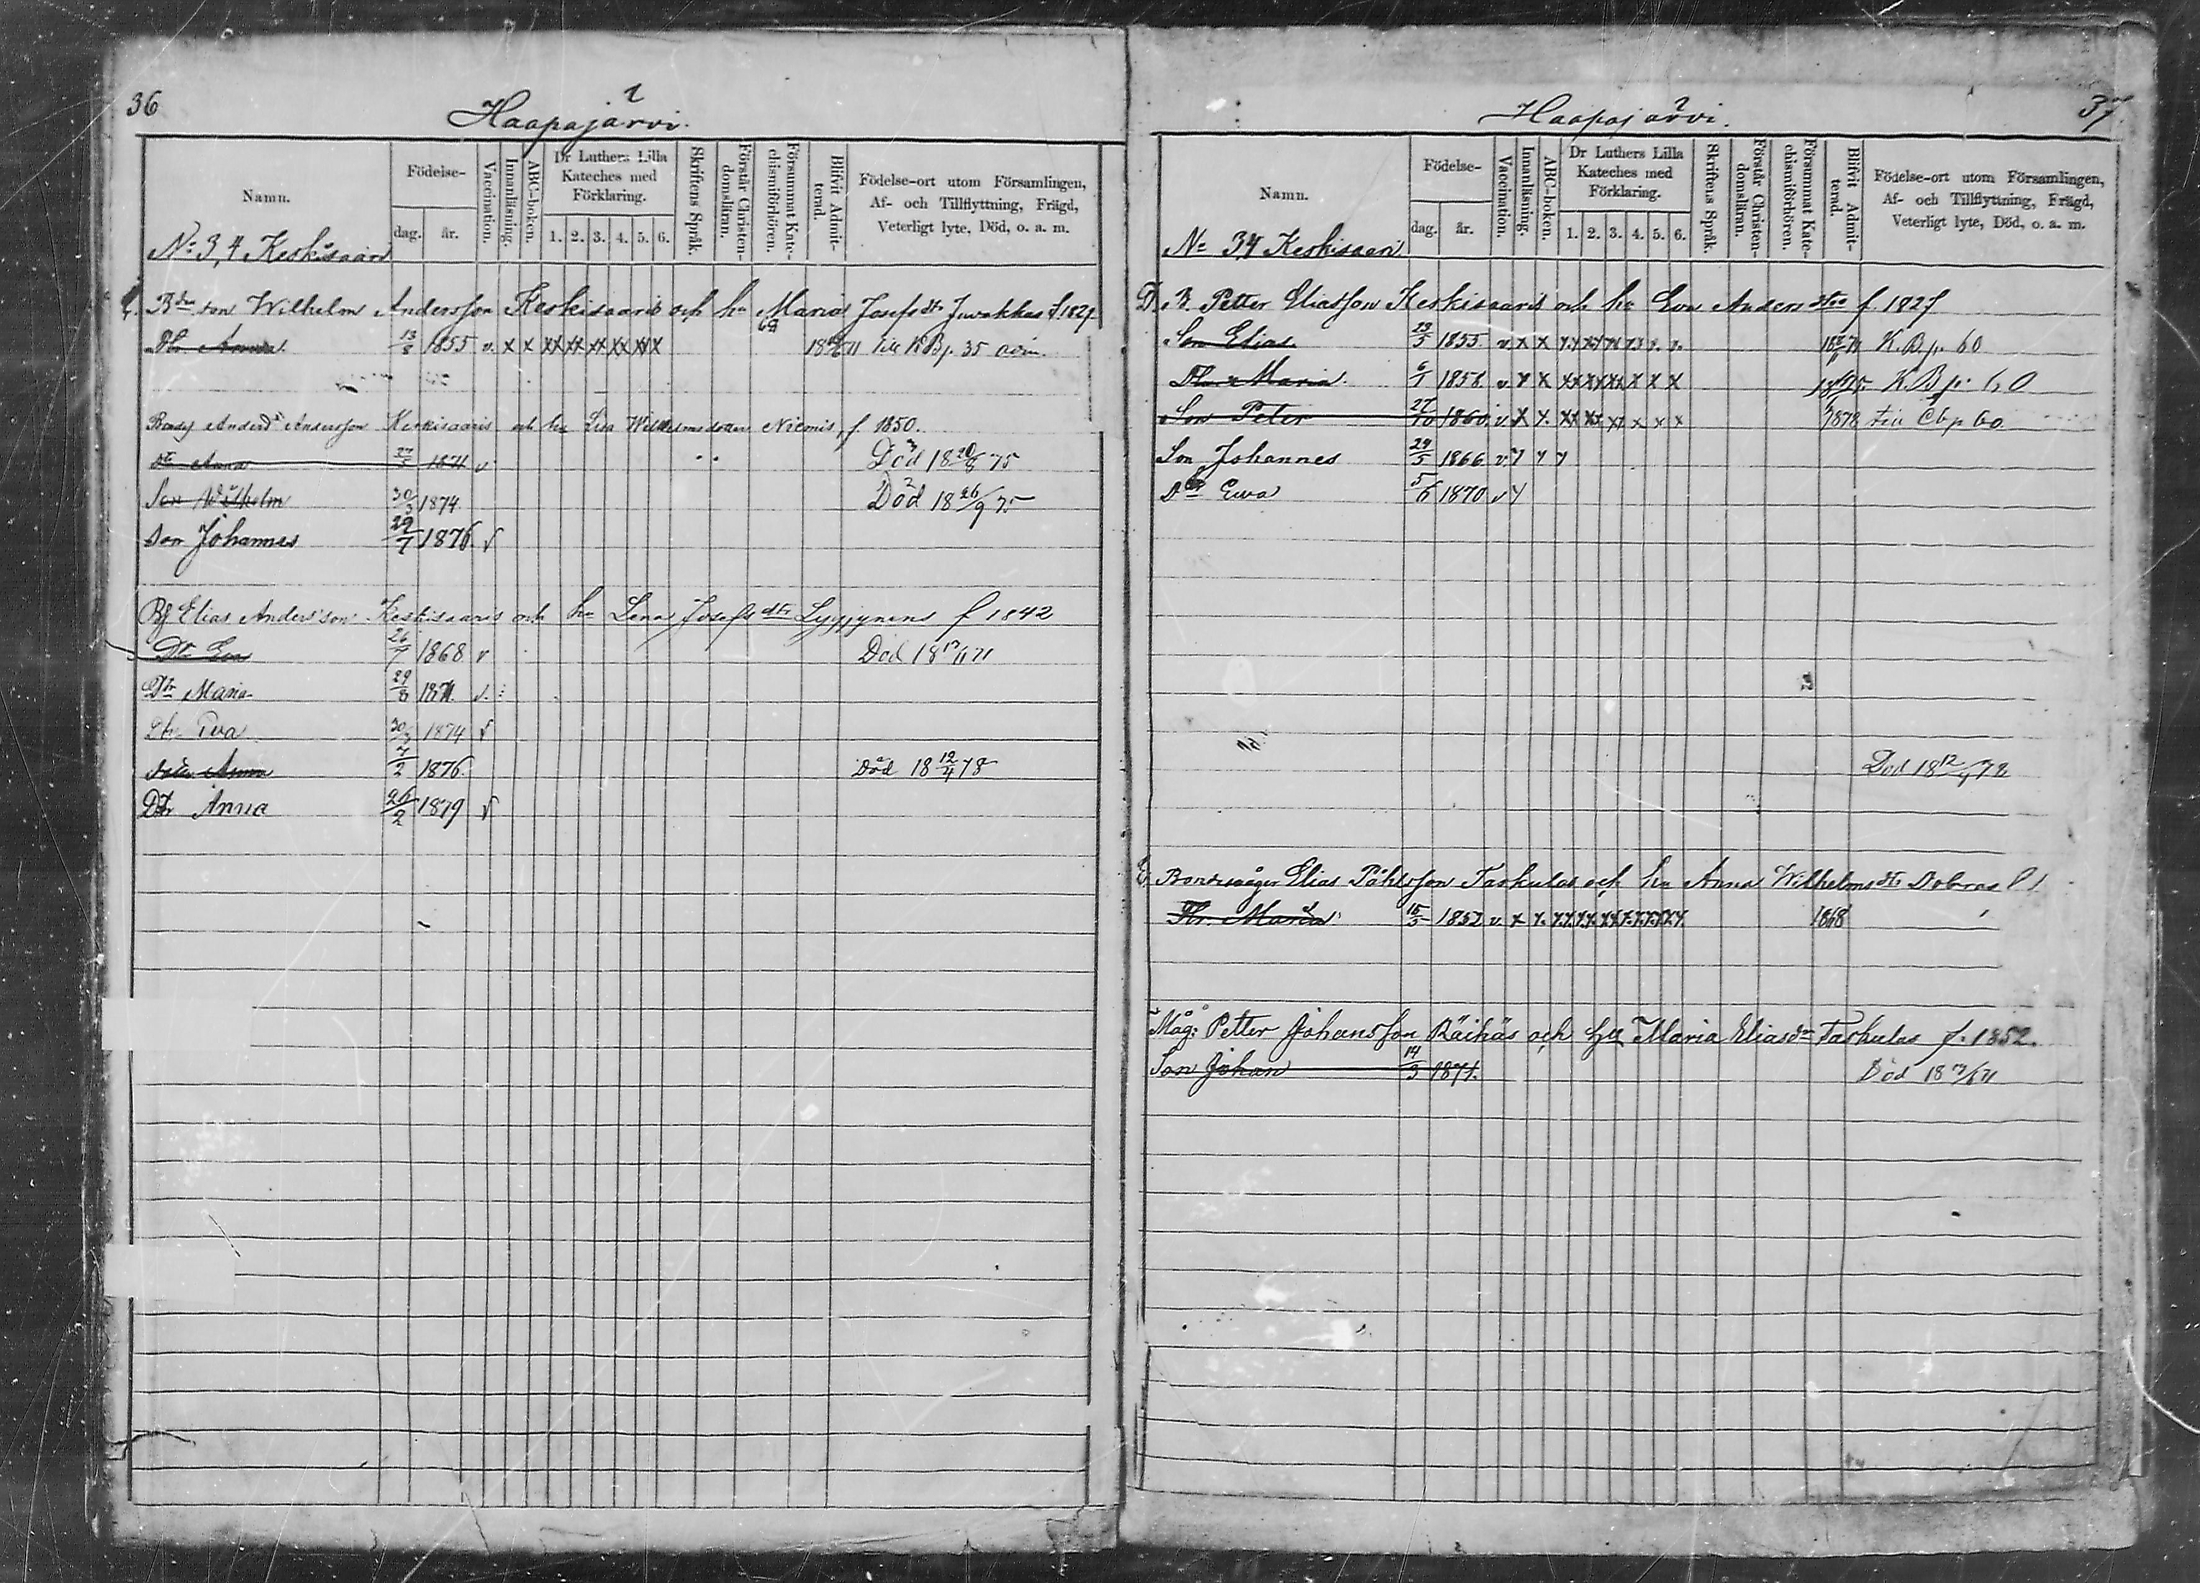 36
Haapajärvi.
Namn.
Födelse-
dag.
år.
Vaccination.
Innanläsning.
ABC-boken.
Dr Luthers Lilla Kateches med Förklaring.
1. 2. 3. 4. 5. 6.
Skriftens Språk.
Förstår Christendomsläran.
Försummat Katechismiförhören.
Blifvit Admitterad.
Födelse-ort utom Församlingen,
Af- och Tillflyttning, Frägd,
Veterligt lyte, Död, o. a. m.
No 3,4 Keskisaari
Bdeson Wilhelm Andersson Keskisaaris och hu Maria Josefsdr Juvakkas f 1827
Dtr Anna. 13/8 1855 v. x x xx xx xx xx xx x 71 till KB p. 35
Andersson Keskisaaris och hu Lisa Wilhelmsdotter Niemis, f. 1850.
Dtr Anna 27/5 1871 v Död 18 20/8 75
Son Wilhelm 30/3 1874 Död 18 26/9 75
Son Johannes 29/7 1876 v
Elias Andersson Keskisaaris och hu Lena Josefsdtr f 1842
Dtr Eva 26/7 1868 v Död 18 71
Dtr Maria 29/8 1871. v.
Dtr Eva 30/3 1874 v
Anna 4/2 1876. Död 18 12/4 78
Dtr Anna 26/2 1879 v
37
Haapajärvi.
Namn.
Födelse-
dag.
år.
Vaccination.
Innanläsning.
ABC-boken.
Dr Luthers Lilla Kateches med Förklaring.
1. 2. 3. 4. 5. 6.
Skriftens Språk.
Förstår Christendomsläran.
Försummat Katechismiförhören.
Blifvit Admitterad.
Födelse-ort utom Församlingen,
Af- och Tillflyttning, Frägd,
Veterligt lyte, Död, o. a. m.
No 34 Keskisaari
D. B. Petter Eliasson Keskisaaris och hu Eva Andersdtr f. 1827
Son Elias 1855. v. x x K.B p. 60
Dtr Maria. 6/1 1858 v x x xx xx xx x x x K.B p. 60
Son Peter 27/10 1860. v x x. xx xx xx x x x 1878 till Cbp 60
Son Johannes 29/5 1866 v
Dtr Ewa 5/6 1870 v
Död 18 12/4 78
E. Bondemågen Elias Påhlsson Taskulas och hu Anna Wilhelmsdtr
Dtr Maria 15/3 1852 v. x 1868
Måg: Petter Johansson Räihäs och Hu Maria Eliasdr Taskulas f. 1852.
Son Johan 14/3 1871. Död 18 71